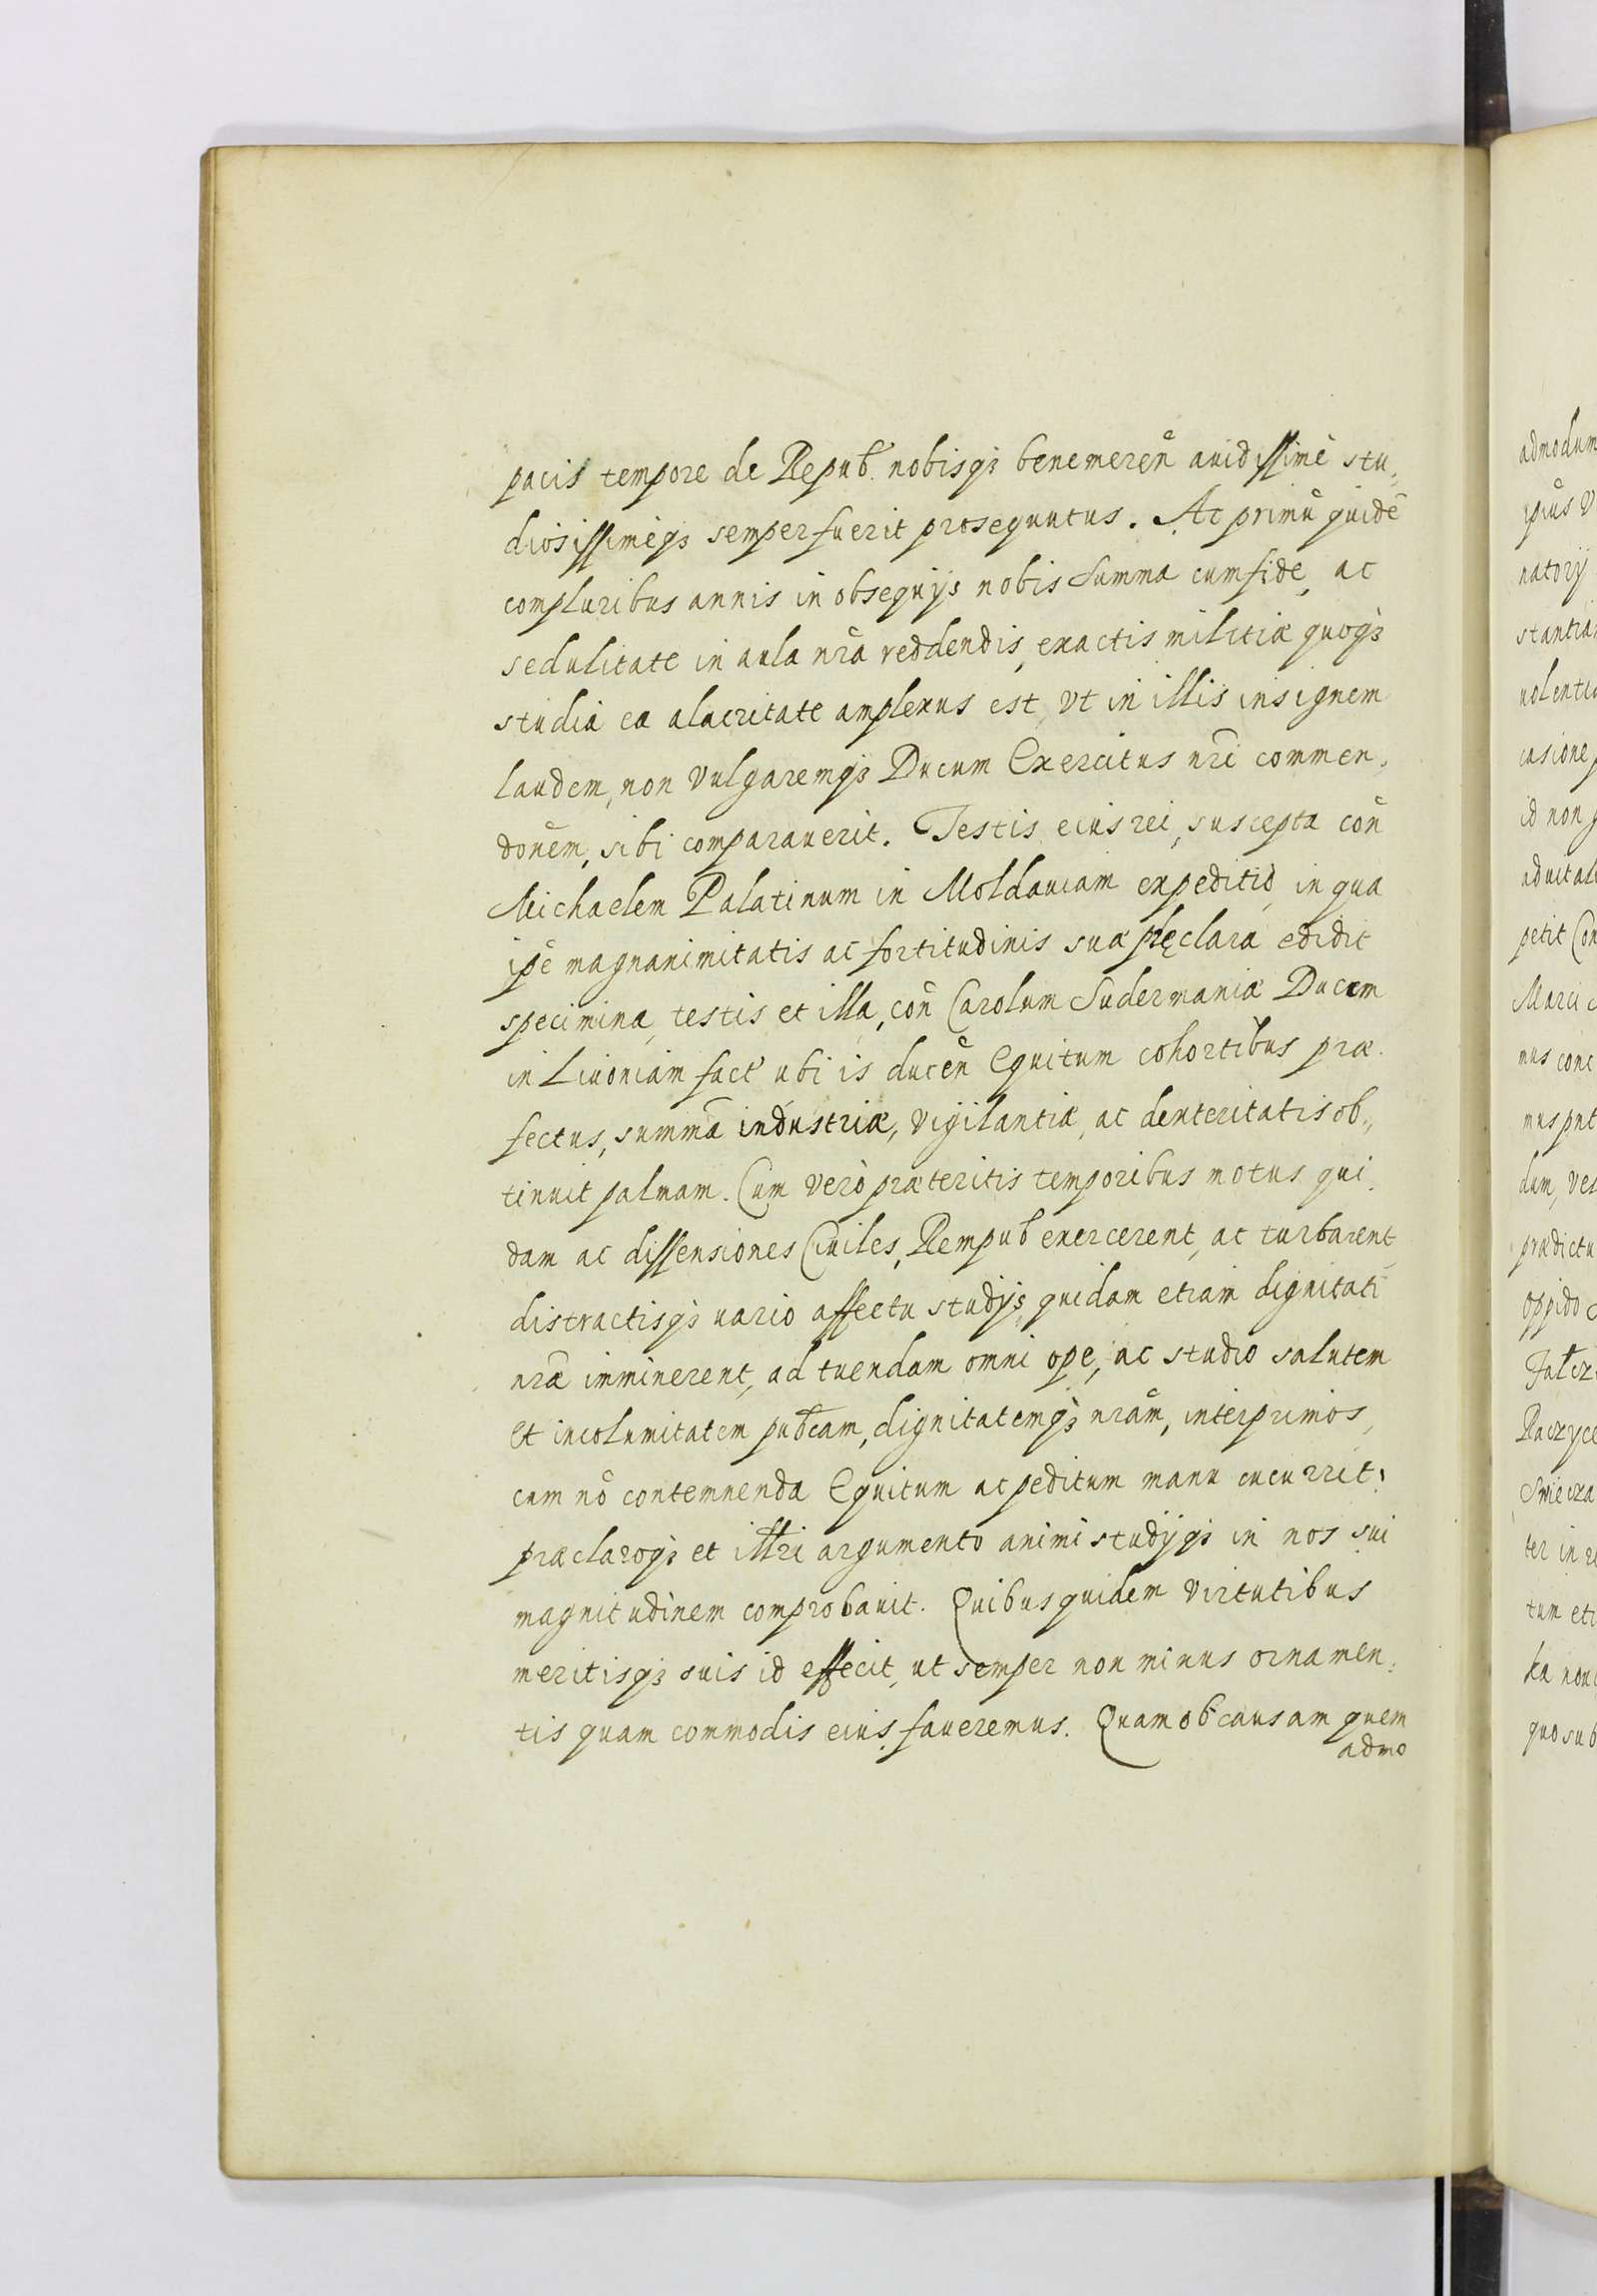 pacis tempore de Repub. nobisq₃ benemereñ auidissimè stu,
diosissimeq₃ semper fuerit prosequutus. Ac primũ quidẽ
compluribus annis in obsequijs nobis summa cum fide, ac
sedulitate in aula nr̃a reddendis, exactis militiæ quoq₃
studia ea alacritate amplexus est, vt in illis insignem
laudem, non vulgaremq₃ Ducum Exercitus nr̃i commen,
doñem, sibi comparauerit. Testis eius rei, suscepta coñ
Michaelem Palatinum in Moldauiam expeditio, in qua
ip̃e magnanimitatis ac fortitudinis suæ pręclara edidit
specimina, testis et illa, coñ Carolum Sudermaniæ Ducem
in Liuoniam fact' ubi is duceñ Equitum cohortibus præ,
fectus, summã industriæ, vigilantiæ, ac dexteritatis ob,
tinuit palmam. Cum verò præteritis temporibus motus qui,
dam ac dissensiones Ciuiles, Rempub exercerent, ac turbarent,
distractisq₃ uario affectu studijs, quidam etiam dignitati
nr̃æ imminerent, ad tuendam omni ope, ac studio salutem
et incolumitatem pubcam, dignitatemq₃ nrãm, inter primos,
cum nõ contemnenda Equitum ac peditum manu cucurrit,
præclaroq₃ et illri argumento animi studijq₃ in nos sui
magnitudinem comprobauit. Quibus quidem virtutibus
meritisq₃ suis id effecit, ut semper non minus ornamen,
tis quam commodis eius faueremus. Quam ob causam quem
admo
admodum
ip̃ius V
natorij
stantia
uolentia
casione p
id non
aduitali
petit Con
Marci
mus conc
mus put
dum, vel
prædictu
oppido
Falcz
Raczyce
Swiecza
ter in re
tum eti
ka noui
quo sub